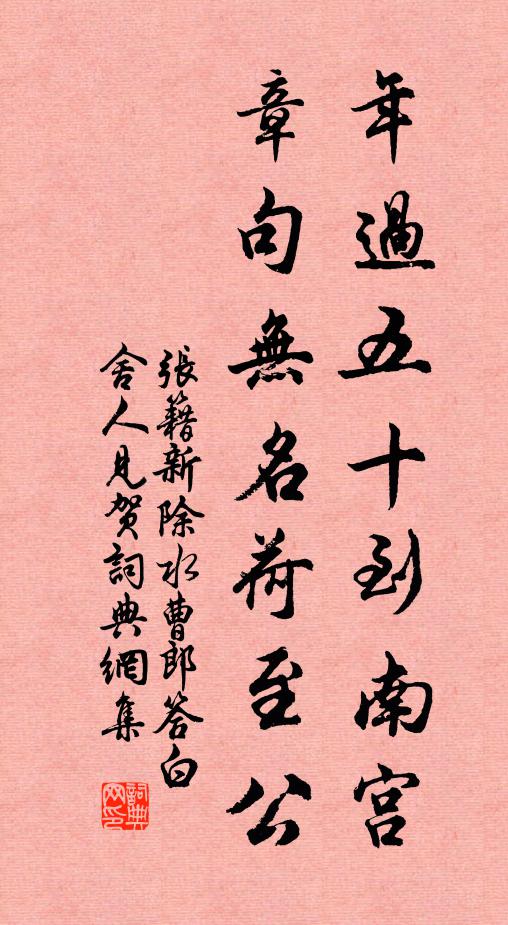 年過五十到南宮
章句無名荷至公
張籍新除水曹郎答白
舍人見賀詞典網集
詞典网印